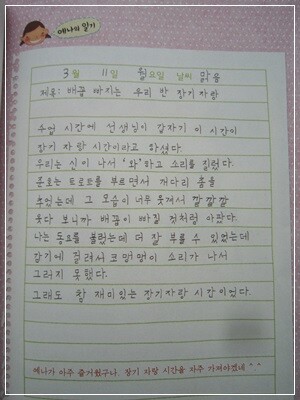 예나의 일기
3월 11일 월요일 날씨 맑음
제목: 배꼽 빠지는 우리 반 장기 자랑
수업 시간에 선생님이 갑자기 이 시간이
장기 자랑 시간이라고 하셨다.
우리는 신이 나서 '와'하고 소리를 질렀다.
준호는 트로트를 부르면서 개다리 춤을
추었는데 그 모습이 너무 웃겨서 깔깔깔
웃다 보니까 배꼽이 빠질 것처럼 아팠다.
나는 동요를 불렀는데 더 잘 부를 수 있었는데
감기에 걸려서 코맹맹이 소리가 나서
그러지 못했다.
그래도 참 재미있는 장기자랑 시간이었다.
예나가 아주 즐거웠구나. 장기 자랑 시간을 자주 가져야겠네 ^.^